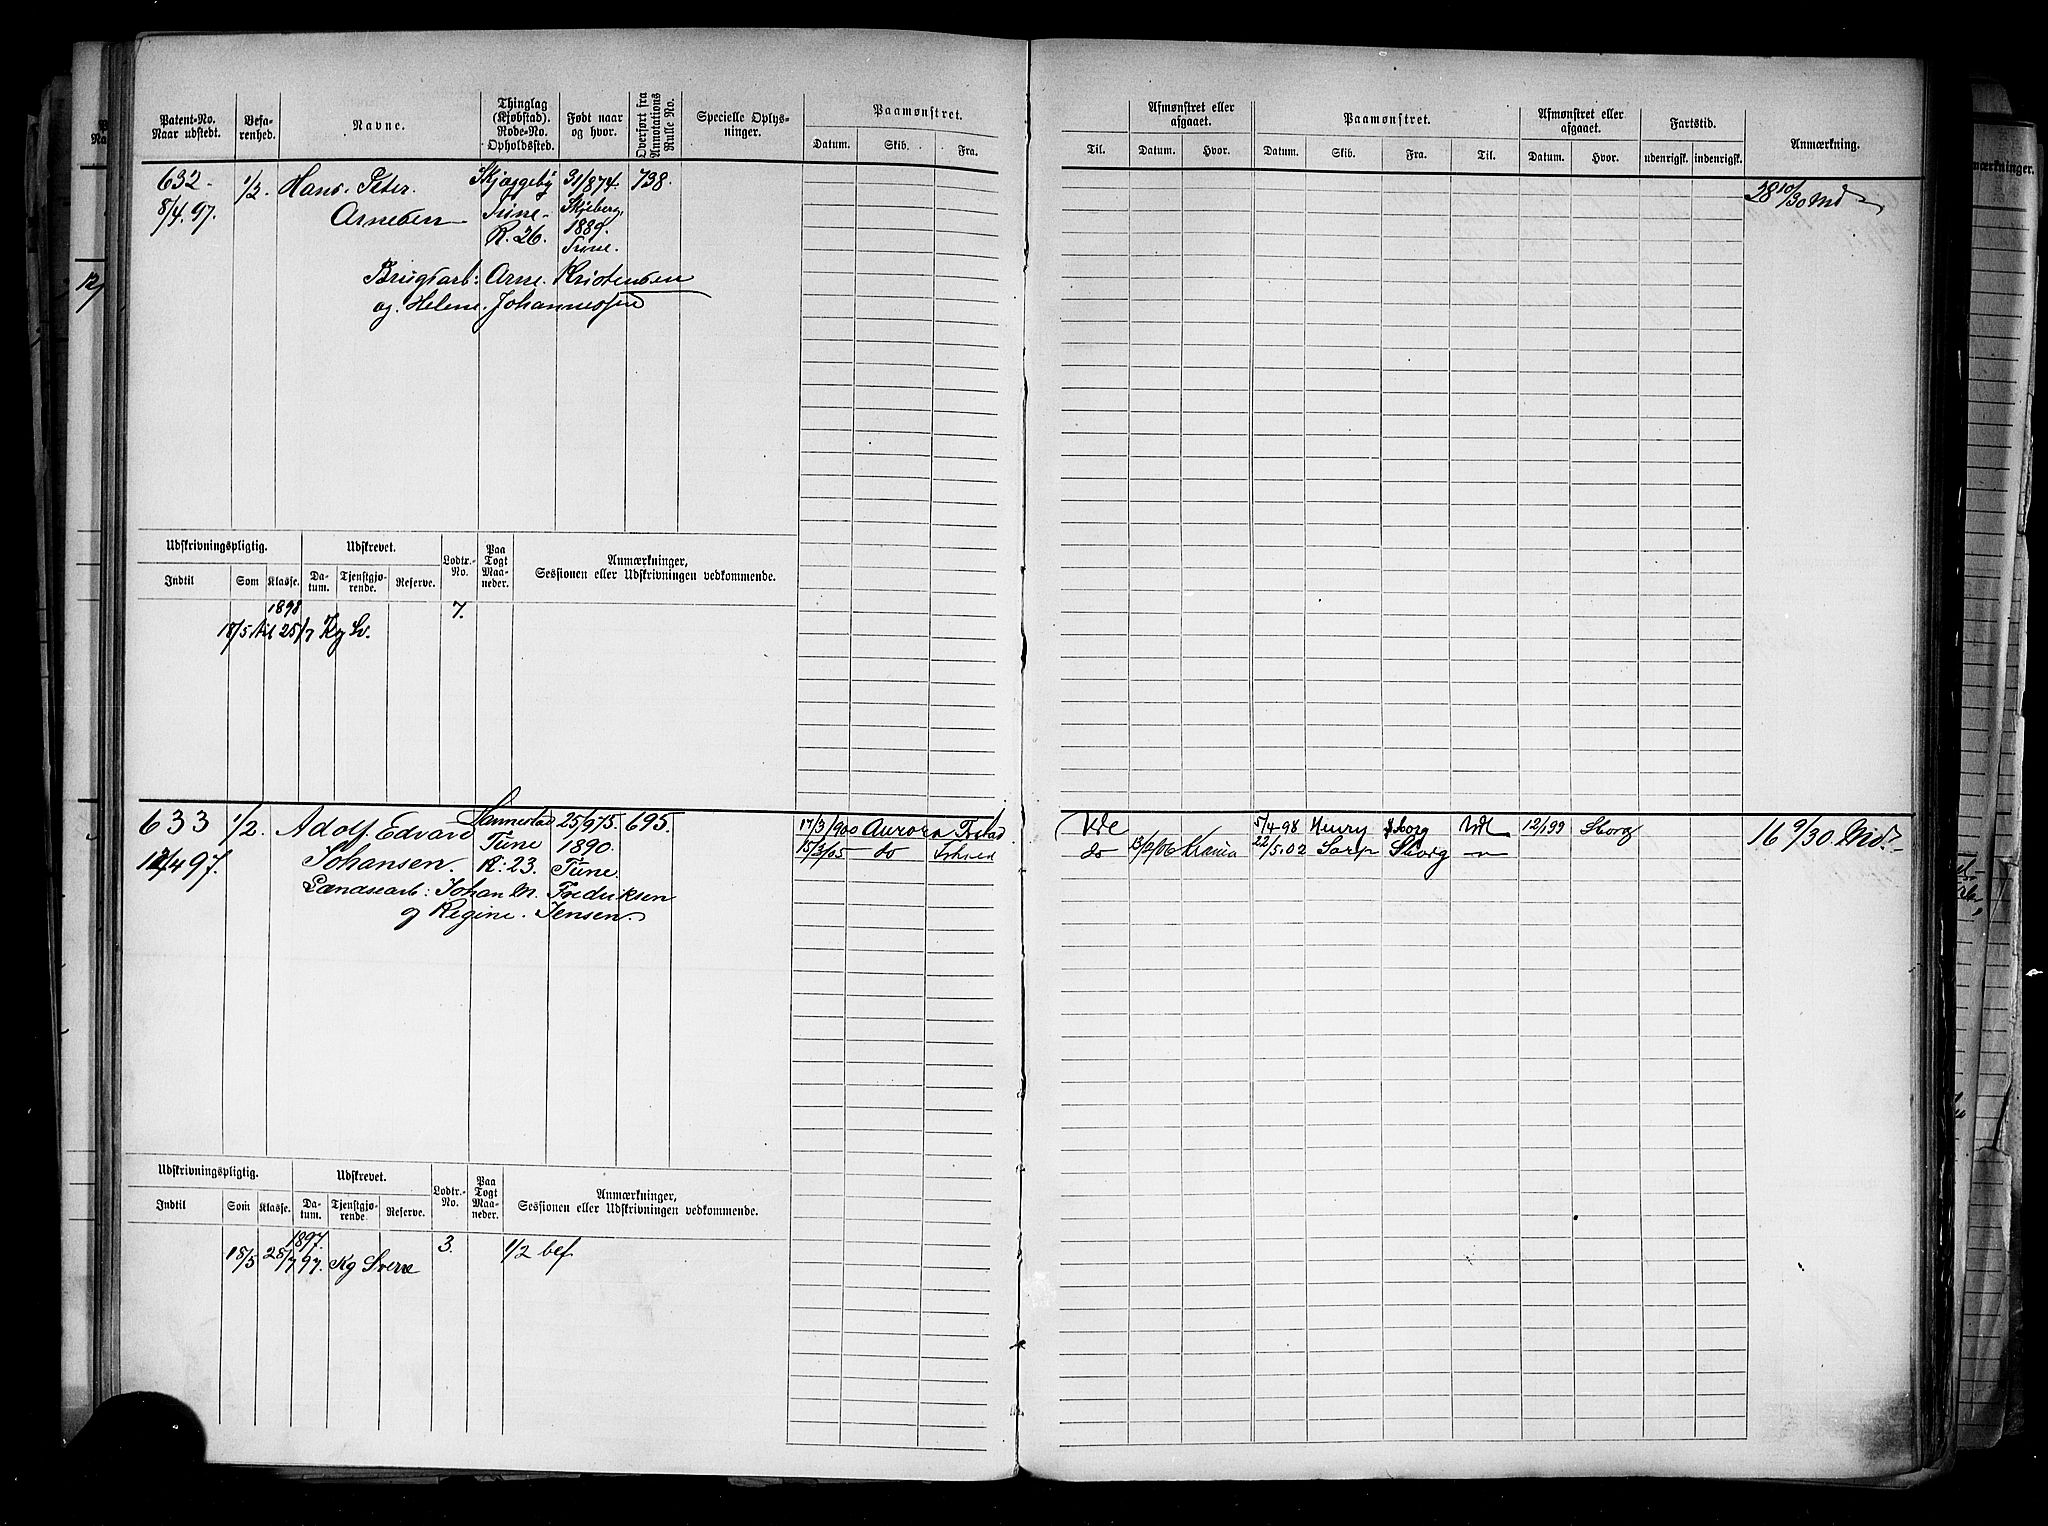 Patent-No. Naar udstedt.
Befarenhed.
Navne.
Thinglag (Kjøbstad). Rode-No. Opholdssted.
Født naar og hvor.
Overført fra Annotations Rulle No.
Specielle Oplysninger.
Paamønstret.
Datum. Skib. Fra.
Til.
Afmønstret eller afgaaet.
Datum. Hvor.
Paamønstret.
Datum. Skib. Fra. Til.
Afmønstret eller afgaaet.
Datum. Hvor.
Fartstid.
udenrigsk. indenrigsk.
Anmærkning.
632. 1/2. Hans Peter Skjøggeby 31/874. 738. 28 10/30 Md
8/4.97. Arnesen Tune Skjeberg,
R. 26. 1889.
Tune.
Brugsarb: Arne Kristensen
og Helene Johannessen
Udskrivningspligtig. Udskrevet. Lodtr.-No. Paa Togt Maaneder. Anmærkninger, Sessionen eller Udskrivningen vedkommende.
Indtil Som Klasse. Datum. Tjenstgjørende. Reserve.
1898 7.
18/5 til 25/7 Kg Sv.
633 1/2. Adolf Edvard Hannestad 25/975. 695. 17/3/900 Aurora Frstad Vde 5/4 98 Henry Sborg Vdl 12/199 Sborg 16 9/30 Md.
12/4 97. Johansen. Tune 1890. 15/3/05 do do Krania 22/5.02 Sarp Sborg
R: 23. Tune.
Landsearb: Johan M. Frederiksen
og Regine Jensen
Udskrivningspligtig. Udskrevet. Lodtr.-No. Paa Togt Maaneder. Anmærkninger, Sessionen eller Udskrivningen vedkommende.
Indtil Som Klasse. Datum. Tjenstgjørende. Reserve.
1897. 3. 1/2 bef
18/5 28/7 97. Kg Sverre